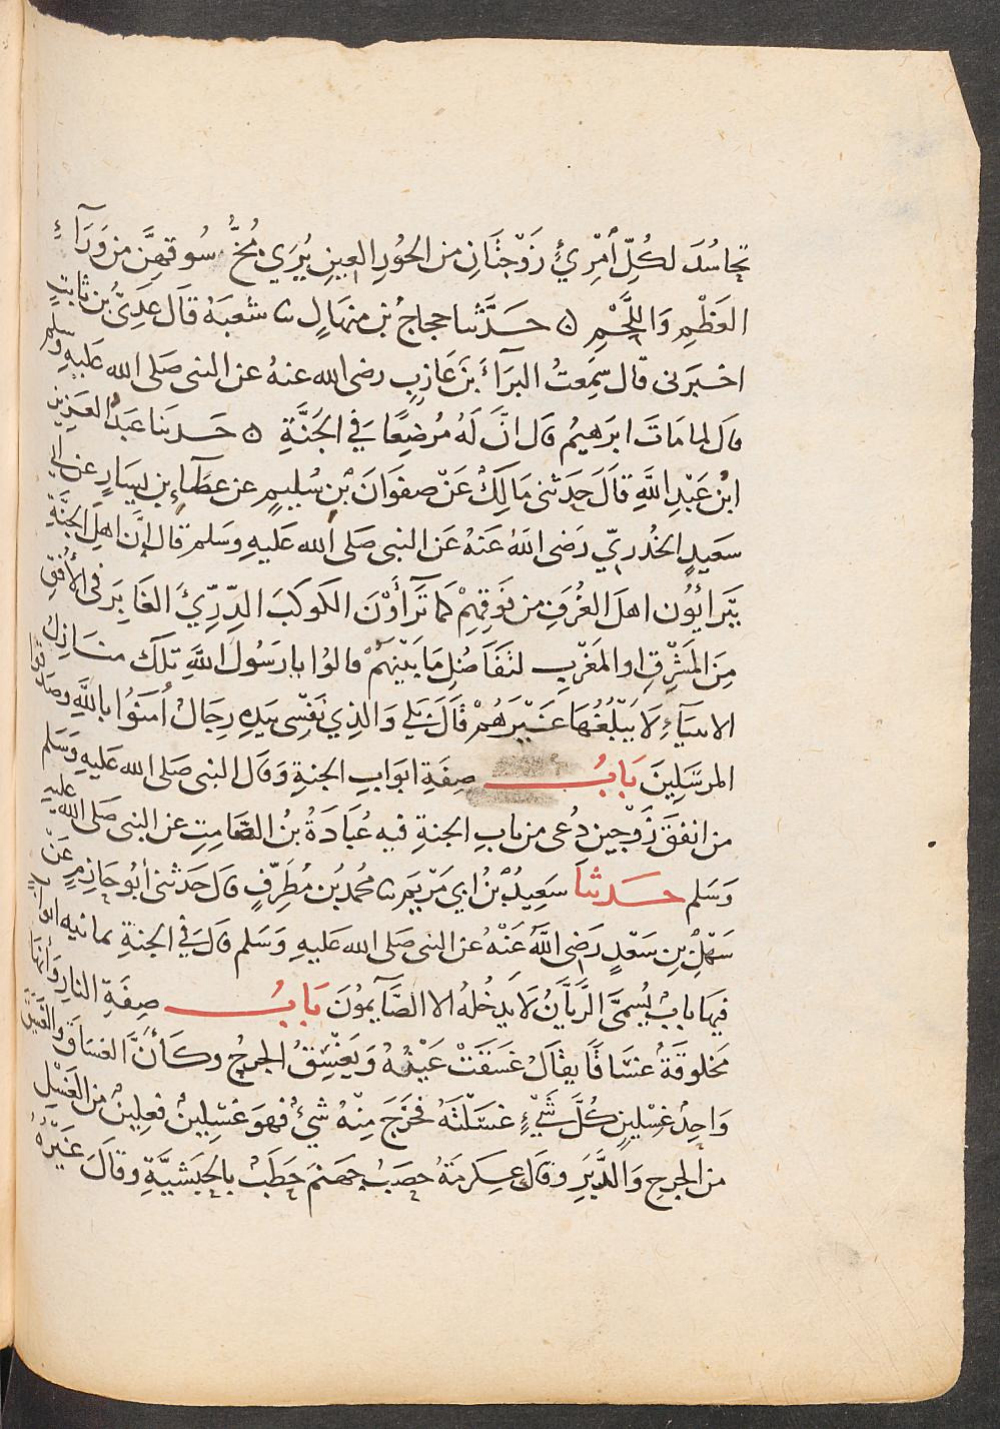 تحاسُدَ لكُلِّ امْرِئٍ زَوْجَتَانِ من الحُورِ العِينِ يُرَي مُخُّ سُوقهِنَّ من وَرَآءِ
العَظْمِ وَاللَّحْمِ ۝ حَدَّثنا حجاجُ بْن منهَالٍ ثنا شُعبَةُ قَال عَدِيُّ بْن ثَابتٍ
اخبَرَنى قَال سَمِعتُ البَرَآءَ بْنَ عَازِبٍ رضى الله عنهُ عن النبى صَلى الله عَلَيهِ وَسلم
قال لمامَاتَ ابرَهيمُ قَال انَّ لَهُ مُرضِعًا فِي الجَنَّةِ ۝ حَدثنا عَبدُ العَزِيزِ
ابْن عَبْدِ اللَّهِ قَالَ حَدثنى مَالِكٌ عَنْ صَفوَانَ بْن سُلَيمٍ عن عطَآءِ بن يَسَارٍ عن ابي
سَعيدٍ الخُدْرِيِّ رَضى اللهُ عَنهُ عَن النبى صَلى الله عَلَيهِ وسَلم قال انَّ اهلَ الجنَّةِ
يَتَرايُون اهلَ الغُرَفِ من فَوقِهِمْ كما تَرَآأَوْنَ الكَوكَبَ الدِّرِّيَّ الغَابِرَ فى الأُفُقِ
مِنَ المَشْرِقِ اوالمَغْرِبِ لتَفَاضُلِ مَابَيْنهُمْ قالوُا يارَسُولَ اللَّهِ تلكَ منَازِلُ
الانبيَآءِ لاَيَبْلُغُهَا غَيْرَهُمْ قَالَ بَلي وَالذِي نَفْسِى بيَدِهِ رِجَالٌ اٰمَنوُا باللَّهِ وصَدَّقوُا
المرسَلِينَ بَابُ صِفَةِ ابَوابِ الجنةِ وَقال النبى صَلى الله عَليهِ وَسَلم
من انفقَ زَوْجين دُعى من باب الجنةِ فيه عُبَادَةُ بْنُ الصَّامِتِ عن النبى صَلى الله عليه
وَسَلم حَدثنا سَعِيدُ بْنُ ابي مَرْيَم ثنا محمدُ بْن مُطَرِّفٍ قَال حَدثنى أَبُو حَازِمٍ عَنْ
سَهْلِ بن سَعْدٍ رَضى اللَّهُ عَنْهُ عن النبى صَلى الله عَليهِ وَسَلم قَال فِي الجنةِ ثمانيه ابوابٍ
فيَهَا بابٌ يُسمَّى الرَّيَّانُ لاَيَدخُلهُ الا الصَّآيمونَ بَابُ صِفَةِ النارِ وَأنهَا
مَخلوقَةٌ غسَّاقًا يقَالُ غَسَقَتْ عَيْنُهُ وَيَغْسِقُ الجرحُ وكَأَنَّ الغسَاقَ والغَسْقَ
وَاحِدٌ غِسْلِينٍ كُلُّ شَيْءٍ غسَلْتَهُ فخَرَجَ مِنْهُ شيْءٌ فهوَ غسْلينٌ فعلِينٌ من الغَسْلِ
من الجرحِ وَالدَّبَرِ وقَال عِكرِمَةُ حصَبُ جهَنمَ حَطَبُ بالحَبشيَّةِ وقَالَ غَيْرُهُ